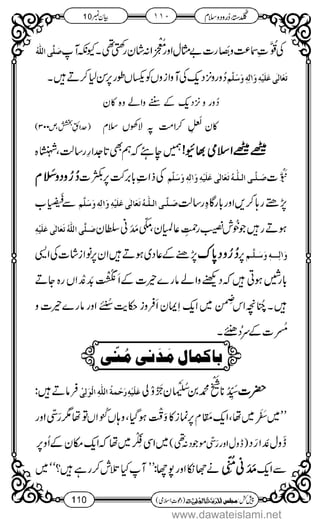 بیان نمبر 10
۱۱۰
گلدستۂ درود و سلام
کی قوّتِ سماعت و بصارت بے مثال اور مُعْجِزانہ شان رکھتی تھی۔ کیونکہ آپ صَلَّی اللهُ
تَعَالٰی عَلَیْهِ وَاٰلِهٖ وَسَلَّم دور و نزدیک کی آوازوں کو یکساں طور پر سُن لیا کرتے ہیں۔
دور و نزدیک کے سننے والے وہ کان
کانِ لعلِ کرامت پہ لاکھوں سلام (حدائقِ بخشش، ص ۳۰۰)
میٹھے میٹھے اسلامی بھائیو! ہمیں چاہئے کہ ہم بھی تاجدارِ رسالت، شہنشاہِ
نبوّت صَلَّی اللهُ تَعَالٰی عَلَیْهِ وَاٰلِهٖ وَسَلَّم کی ذاتِ بابرکت پر بکثرت دُرُود و سلام
پڑھتے رہا کریں اور بارگاہِ رسالت صَلَّی اللهُ تَعَالٰی عَلَیْهِ وَاٰلِهٖ وَسَلَّم سے فیضیاب
ہوتے رہیں جو خوش نصیب رحمتِ عالمیان، مکّی مَدَنی سلطان صَلَّی اللهُ تَعَالٰی عَلَیْهِ
وَاٰلِهٖ وَسَلَّم پر دُرُودِ پاک پڑھنے کے عادی ہوتے ہیں ان پر نوازشات کی ایسی ایسی
بارشیں ہوتی ہیں کہ دیکھنے والے مارے حیرت کے اَنْگُشْت بَدَنْداں رہ جاتے
ہیں۔ چنانچہ اس ضمن میں ایک ایمان افروز حکایت سُنئے اور مارے حیرت و
مسرت کے سر دُھنئے۔
باکمال مَدَنی مُنّی
حضرت سَیِّدُنا شیخ محمد بن سلیمان جَزُولی رَحْمَةُ اللهِ تَعَالٰی عَلَیْهِ فرماتے ہیں:
”میں سَفَر میں تھا، ایک مقام پر نماز کا وَقْت ہو گیا، وہاں کنواں تو تھا مگر رسّی اور
ڈَول نَدارَد (ڈول اور رسّی موجود نہیں تھی) میں اسی فِکْر میں تھا کہ ایک مکان کے اُوپر
سے ایک مَدَنی مُنّی نے جھانکا اور پوچھا: ”آپ کیا تلاش کر رہے ہیں؟“ میں
110
www.dawateislami.net